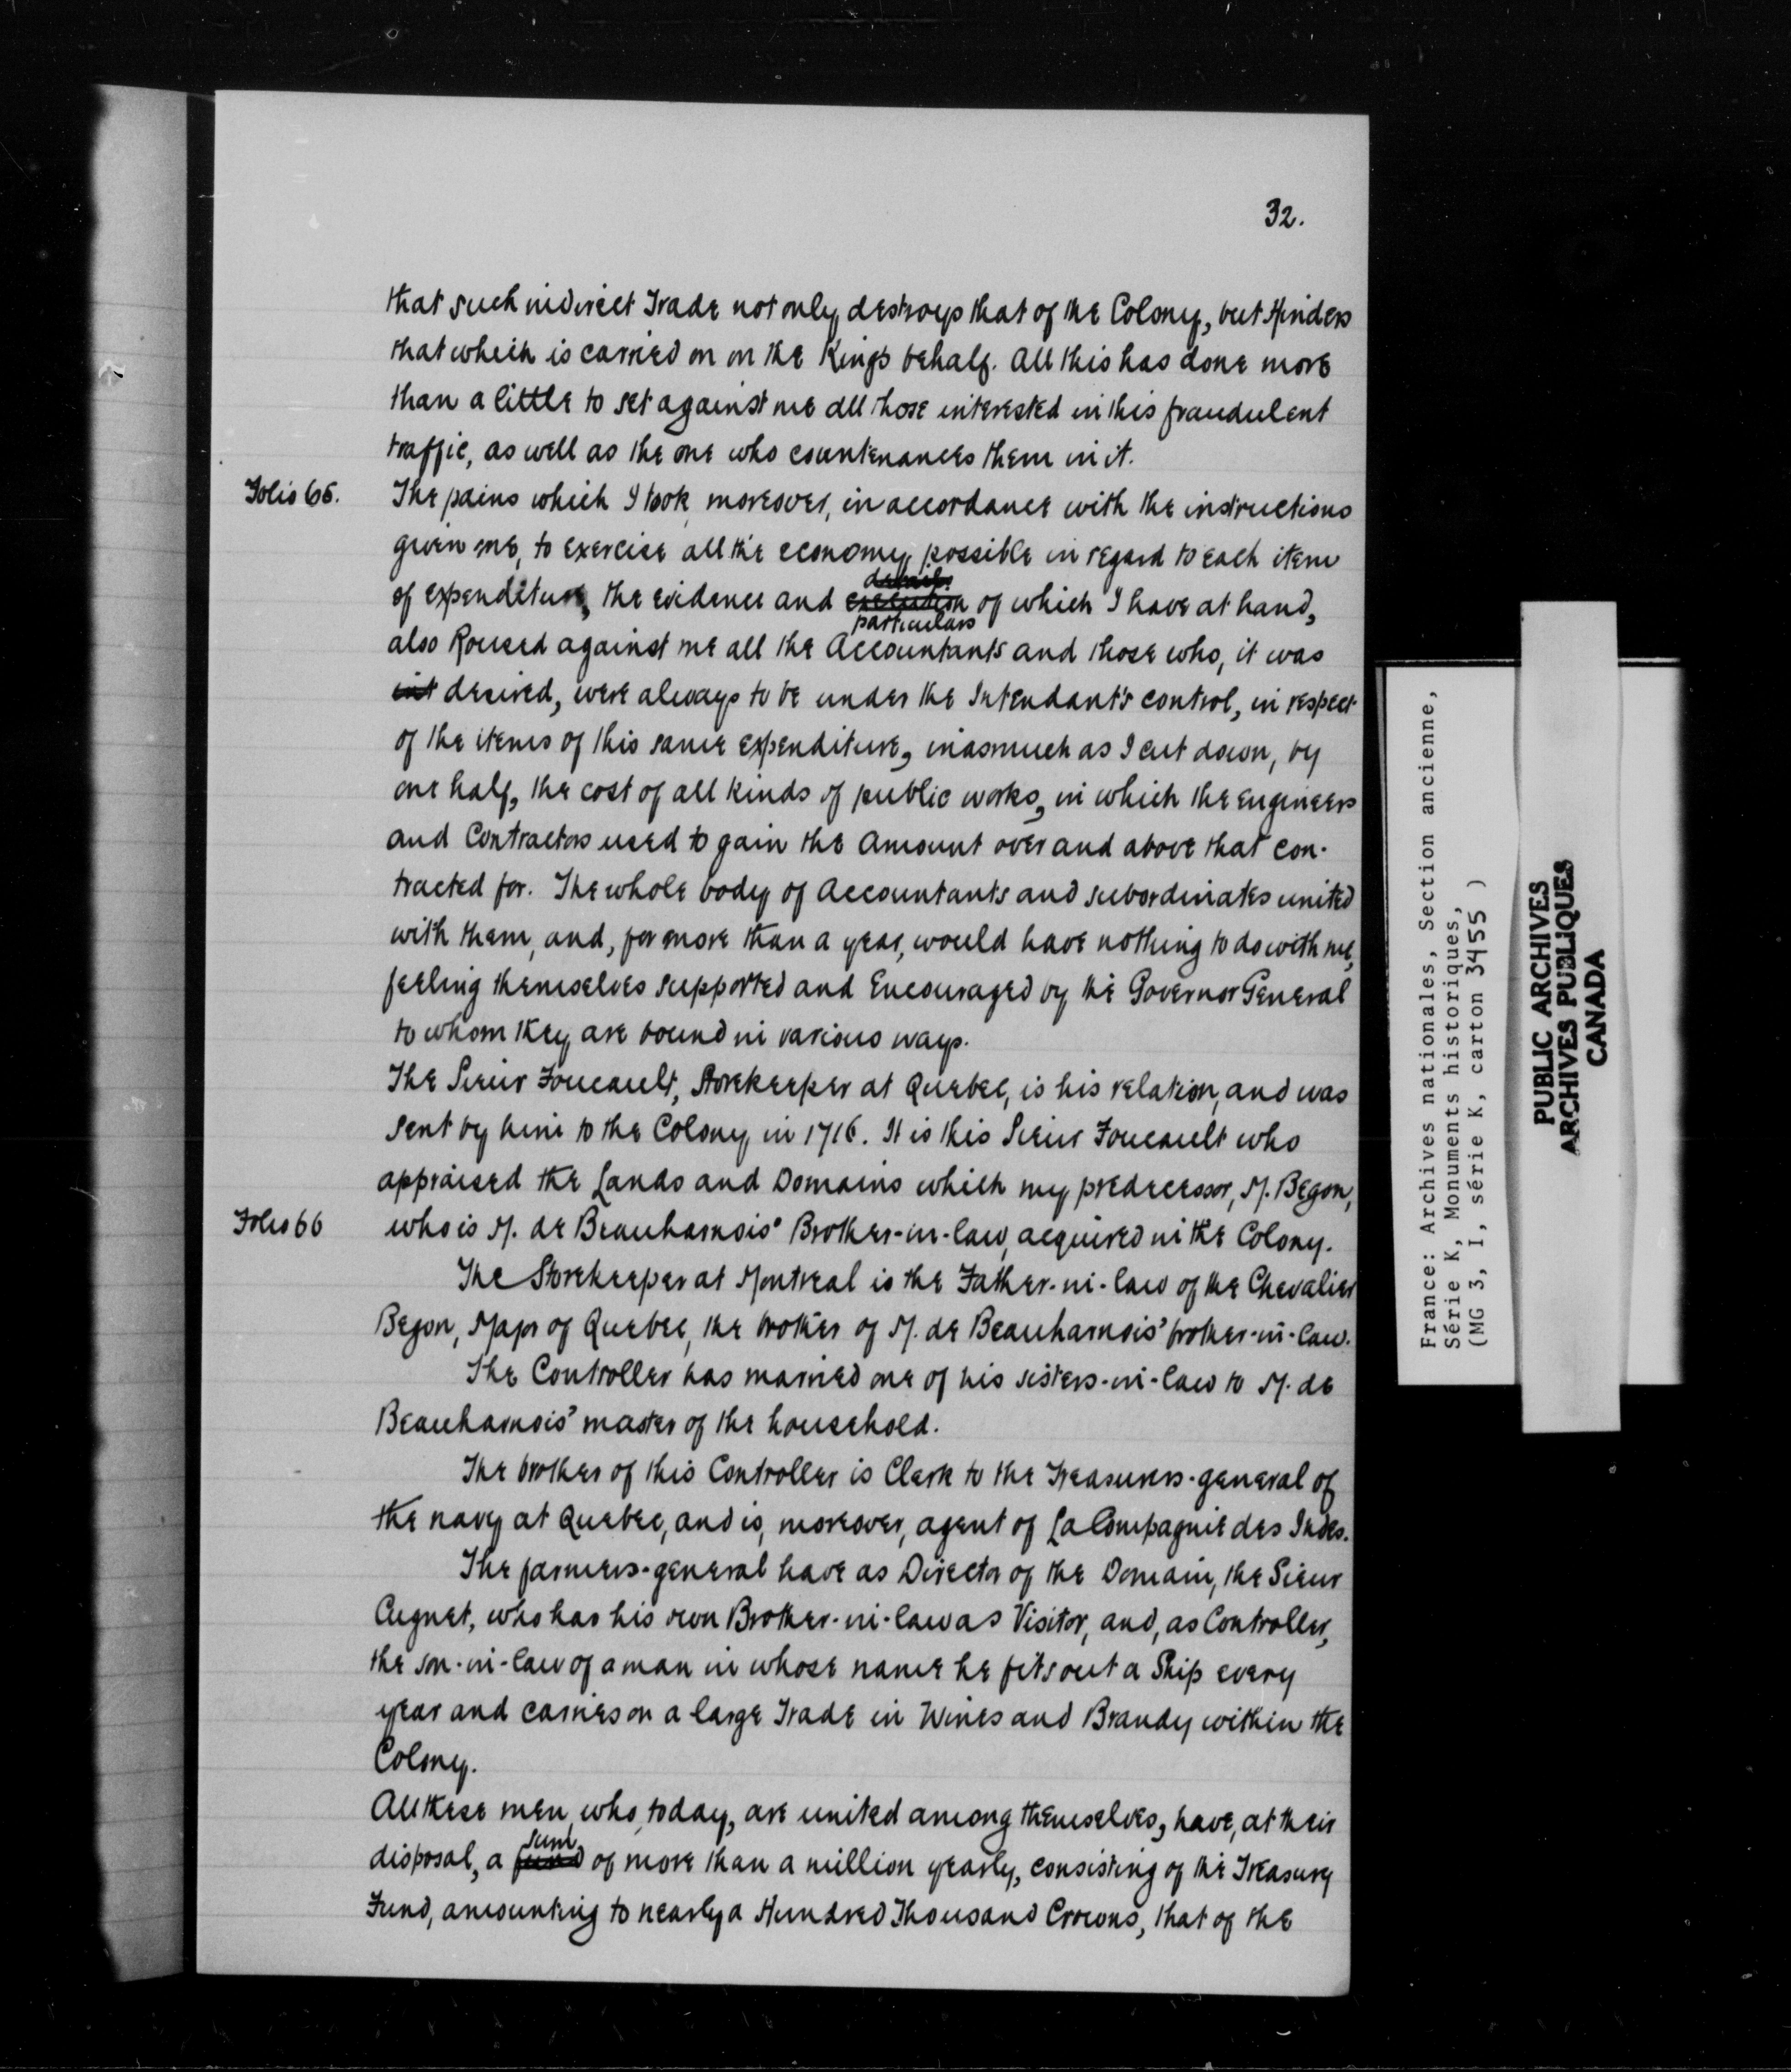 32.
that such indirect Trade not only destroys that of the Colony, but Hinders
that which is carried on on the King's behalf. All this has done more
than a little to set against me all those interested in this fraudulent
traffic, as well as the one who countenances them in it.
Folio 65. The pains which I took, moreover, in accordance with the instructions
given me, to exercise all the economy possible in regard to each item
details
of expenditure, the evidence and execution of which I have at hand,
particulars
also Roused against me all the Accountants and those who, it was
int desired, were always to be under the Intendant's control, in respect
of the items of this same expenditure, inasmuch as I cut down, by
one half, the cost of all kinds of public works, in which the Engineers
and Contractors used to gain the Amount over and above that con-
tracted for. The whole body of Accountants and subordinates united
with them, and, for more than a year, would have nothing to do with me,
feeling themselves supported and Encouraged by the Governor General
to whom they are bound in various ways.
The Sieur Foucault, Storekeeper at Quebec, is his relation, and was
sent by him to the Colony in 1716. It is this Sieur Foucault who
appraised the Lands and Domains which my predecessor, M. Begon,
Folio 66 who is M. de Beauharnois' Brother-in-law, acquired in the Colony.
The Storekeeper at Montreal is the Father-in-law of the Chevalier
Begon, Major of Quebec, the brother of M. de Beauharnois' brother-in-law.
The Controller has married one of his sisters-in-law to M. de
Beauharnois' master of the household.
The brother of this Controller is Clerk to the Treasurers-general of
the navy at Quebec, and is, moreover, agent of La Compagnie des Indes.
The farmers-general have as Director of the Domain, the Sieur
Cugnet, who has his own Brother-in-law as Visitor, and, as Controller,
the son-in-law of a man in whose name he fits out a Ship every
year and carries on a large Trade in Wines and Brandy within the
Colony.
All these men, who, today, are united among themselves, have, at their
sum
disposal, a fund of more than a million yearly, consisting of the Treasury
Fund, amounting to nearly a Hundred Thousand Crowns, that of the
France: Archives nationales, Section ancienne,
Série K, Monuments historiques,
(MG 3, I, série K, carton 3455 )
PUBLIC ARCHIVES
ARCHIVES PUBLIQUES
CANADA